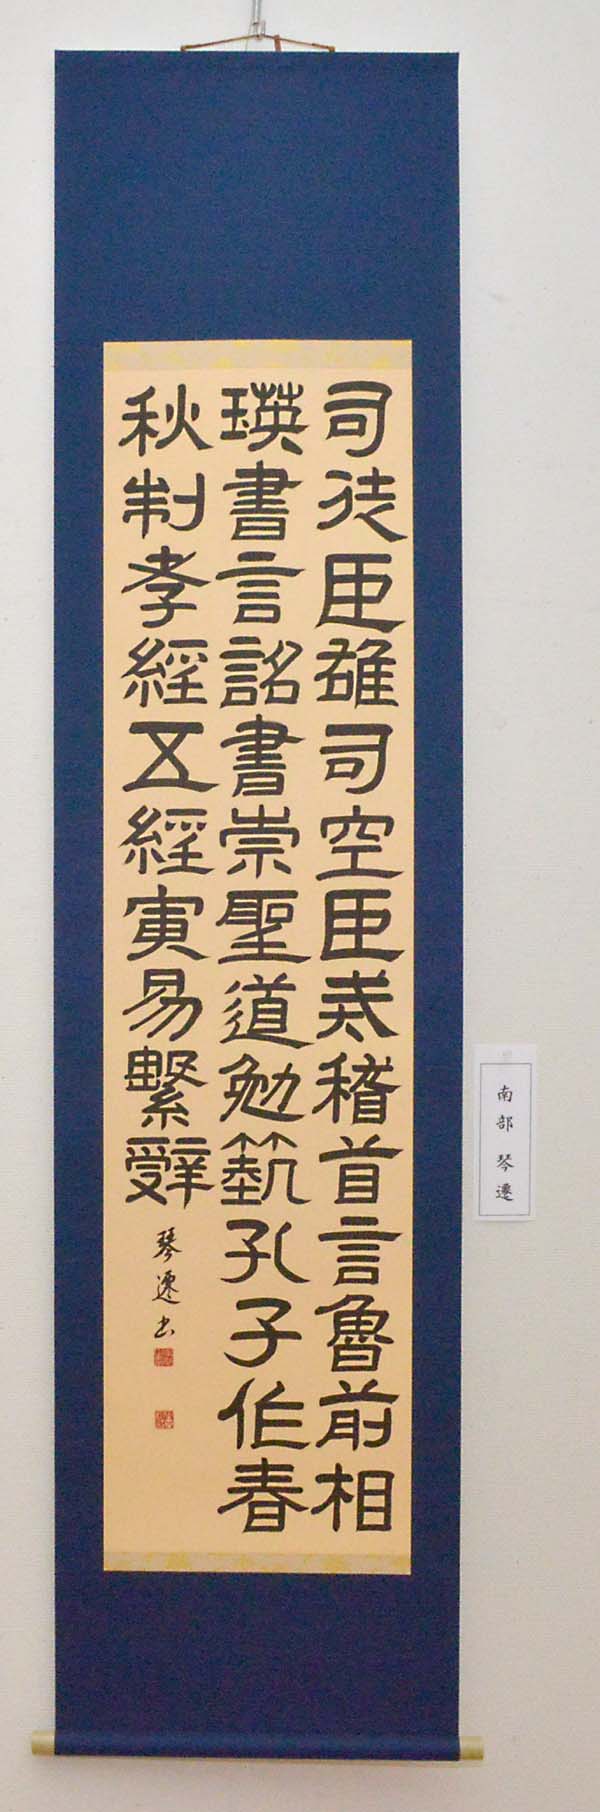 司徒臣雄司空臣戒稽首言魯前相
瑛書言詔書崇聖道勉䓻孔子作春
秋制孝經五經演易繫辭
琴遷書
南部 琴遷